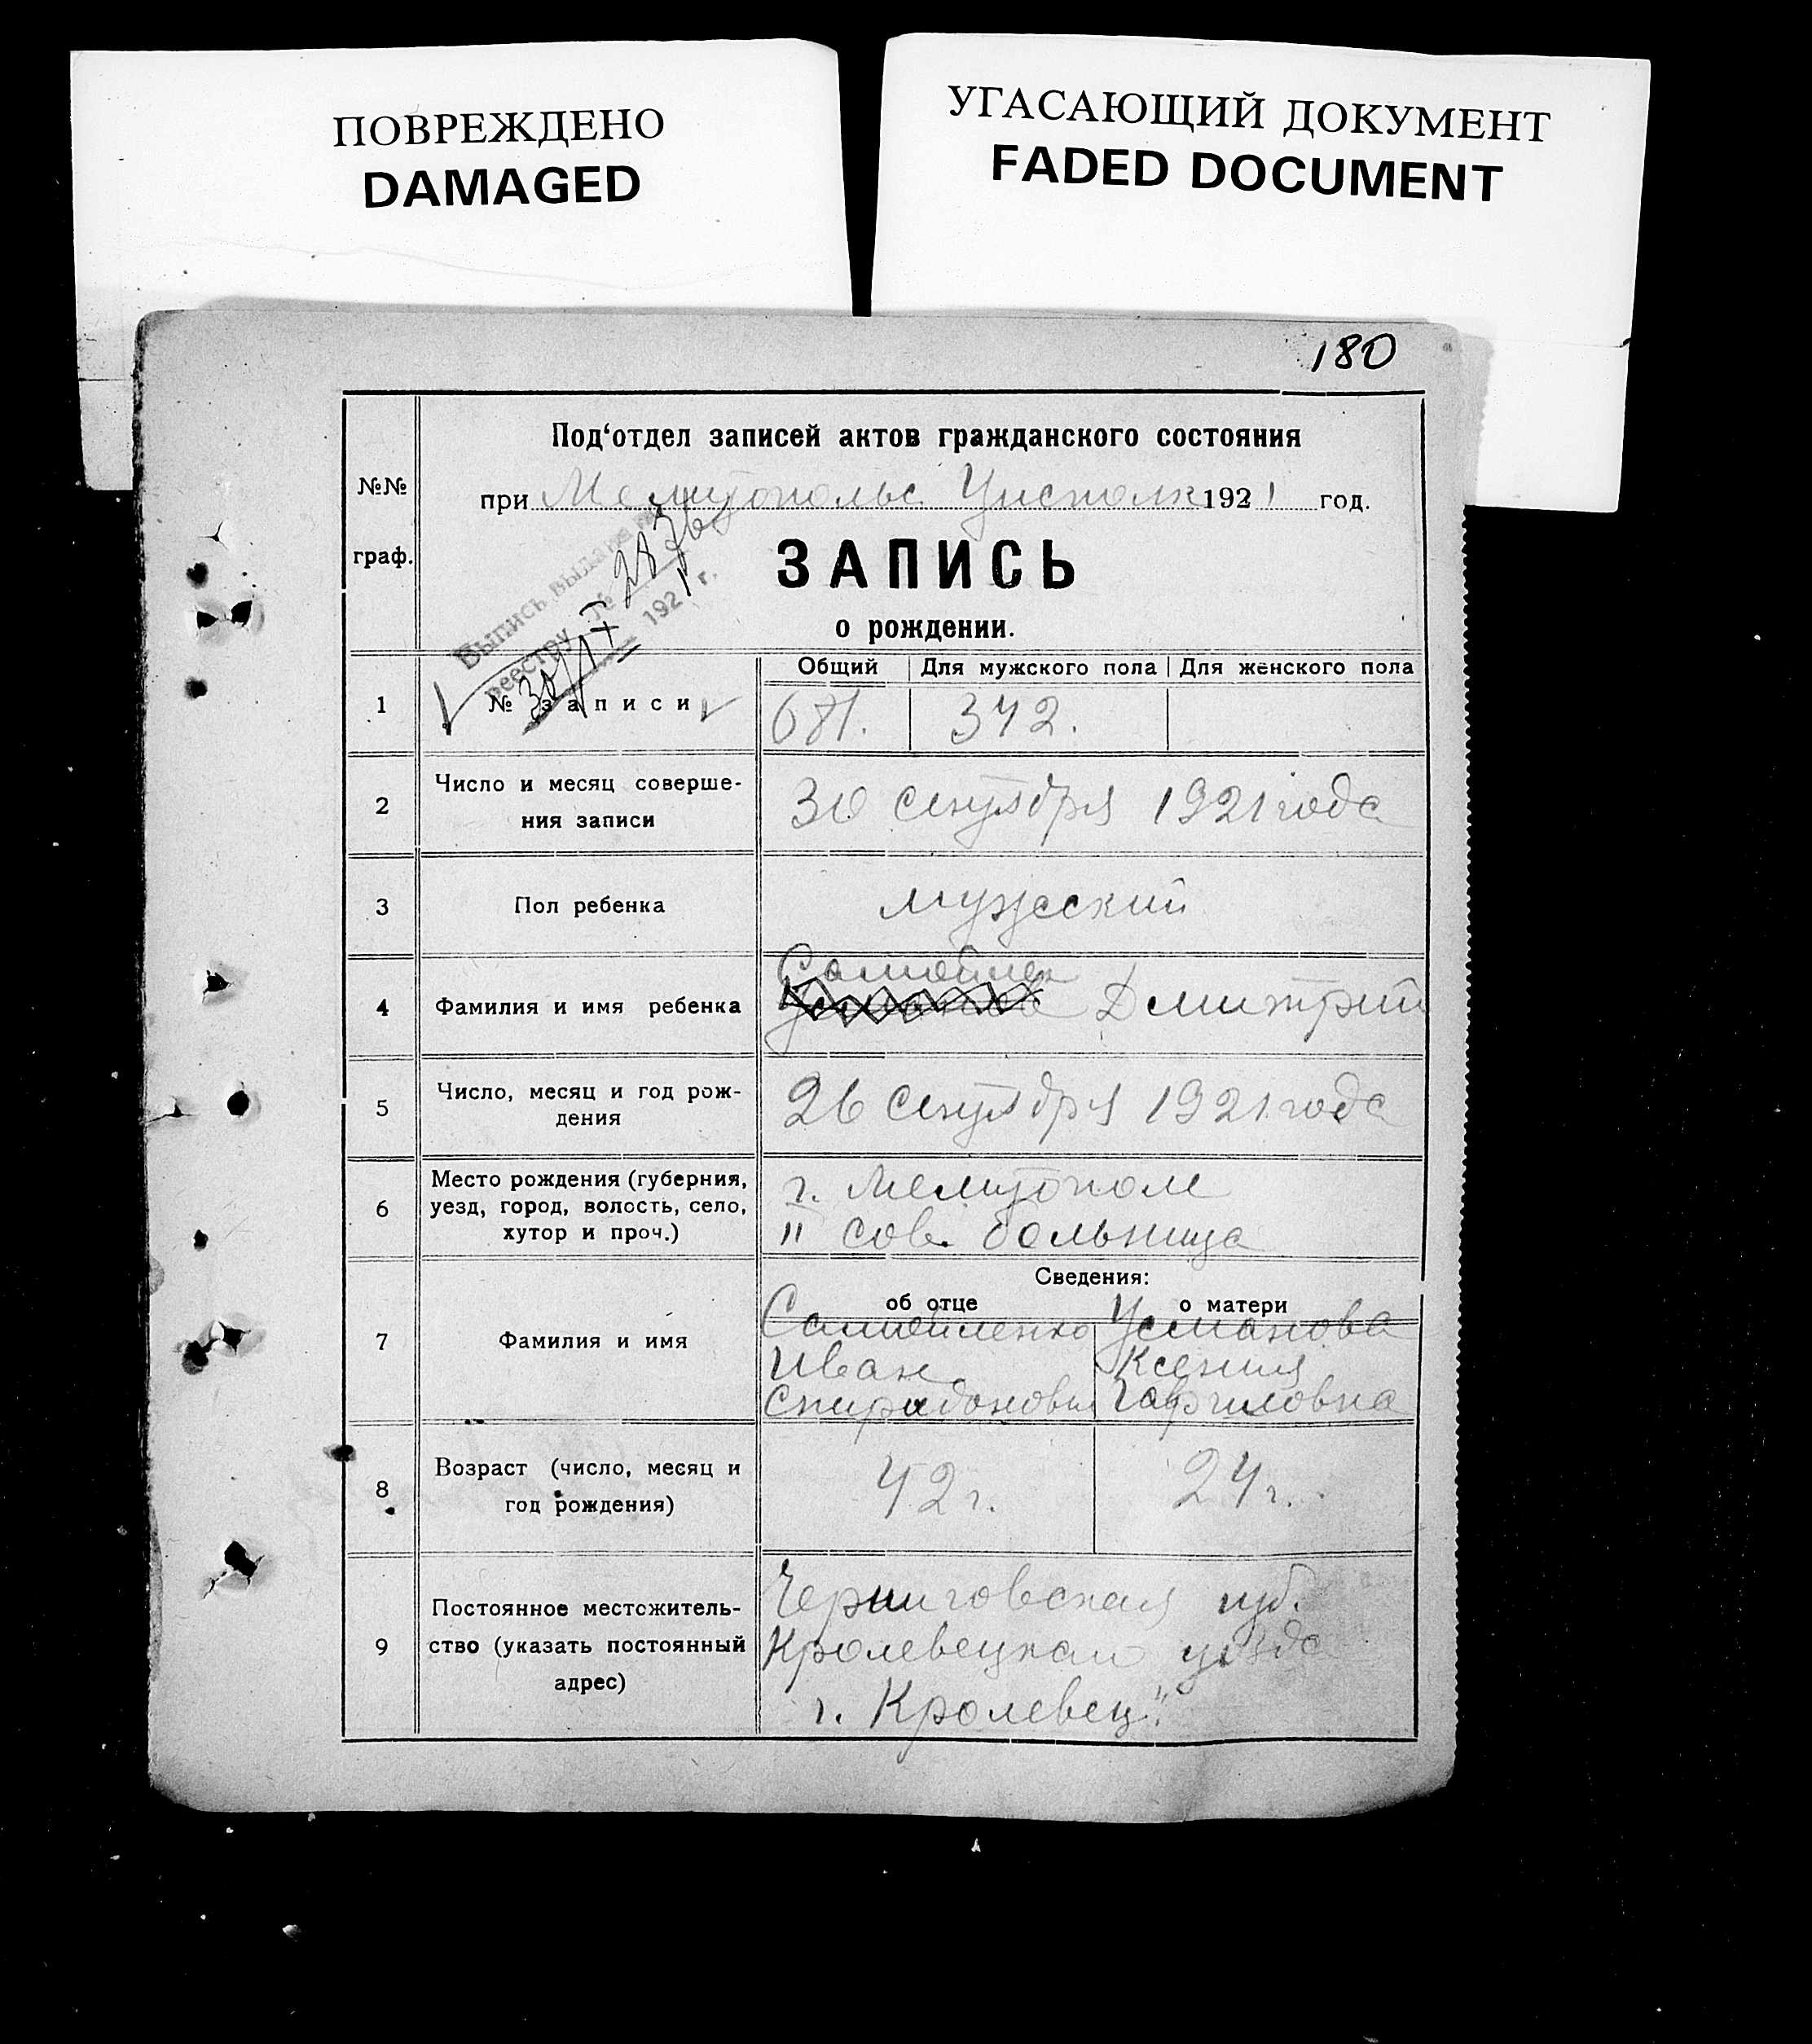 ПОВРЕЖДЕНО
DAMAGED
УГАСАЮЩИЙ ДОКУМЕНТ
FADED DOCUMENT
180
№№
граф.
Под‘отдел записей актов гражданского состояния
при Мелитопольс. Уисполк 1921 год.
ЗАПИСЬ
о рождении.
Выпись выдана
реестру № 2876
30/IX 1921 г.
Общий Для мужского пола Для женского пола
1 № записи 681. 342.
2 Число и месяц соверше-
ния записи
30 сентября 1921 года
3 Пол ребенка мужеский
4 Фамилия и имя ребенка Дмитрий
5 Число, месяц и год рож-
дения
26 сентября 1921 года
6 Место рождения (губерния,
уезд, город, волость, село,
хутор и проч.)
г. Мелитополе
II сов. больница
Сведения:
об отце о матери
7 Фамилия и имя
Самойленко Усманова
Иван Ксения
Спиридоновы Гавриловна
8 Возраст (число, месяц и
год рождения)
42 г. 24 г.
9 Постоянное местожитель-
ство (указать постоянный
адрес)
Черниговская губ.
Кролевецкаго уезда
г. Кролевец"